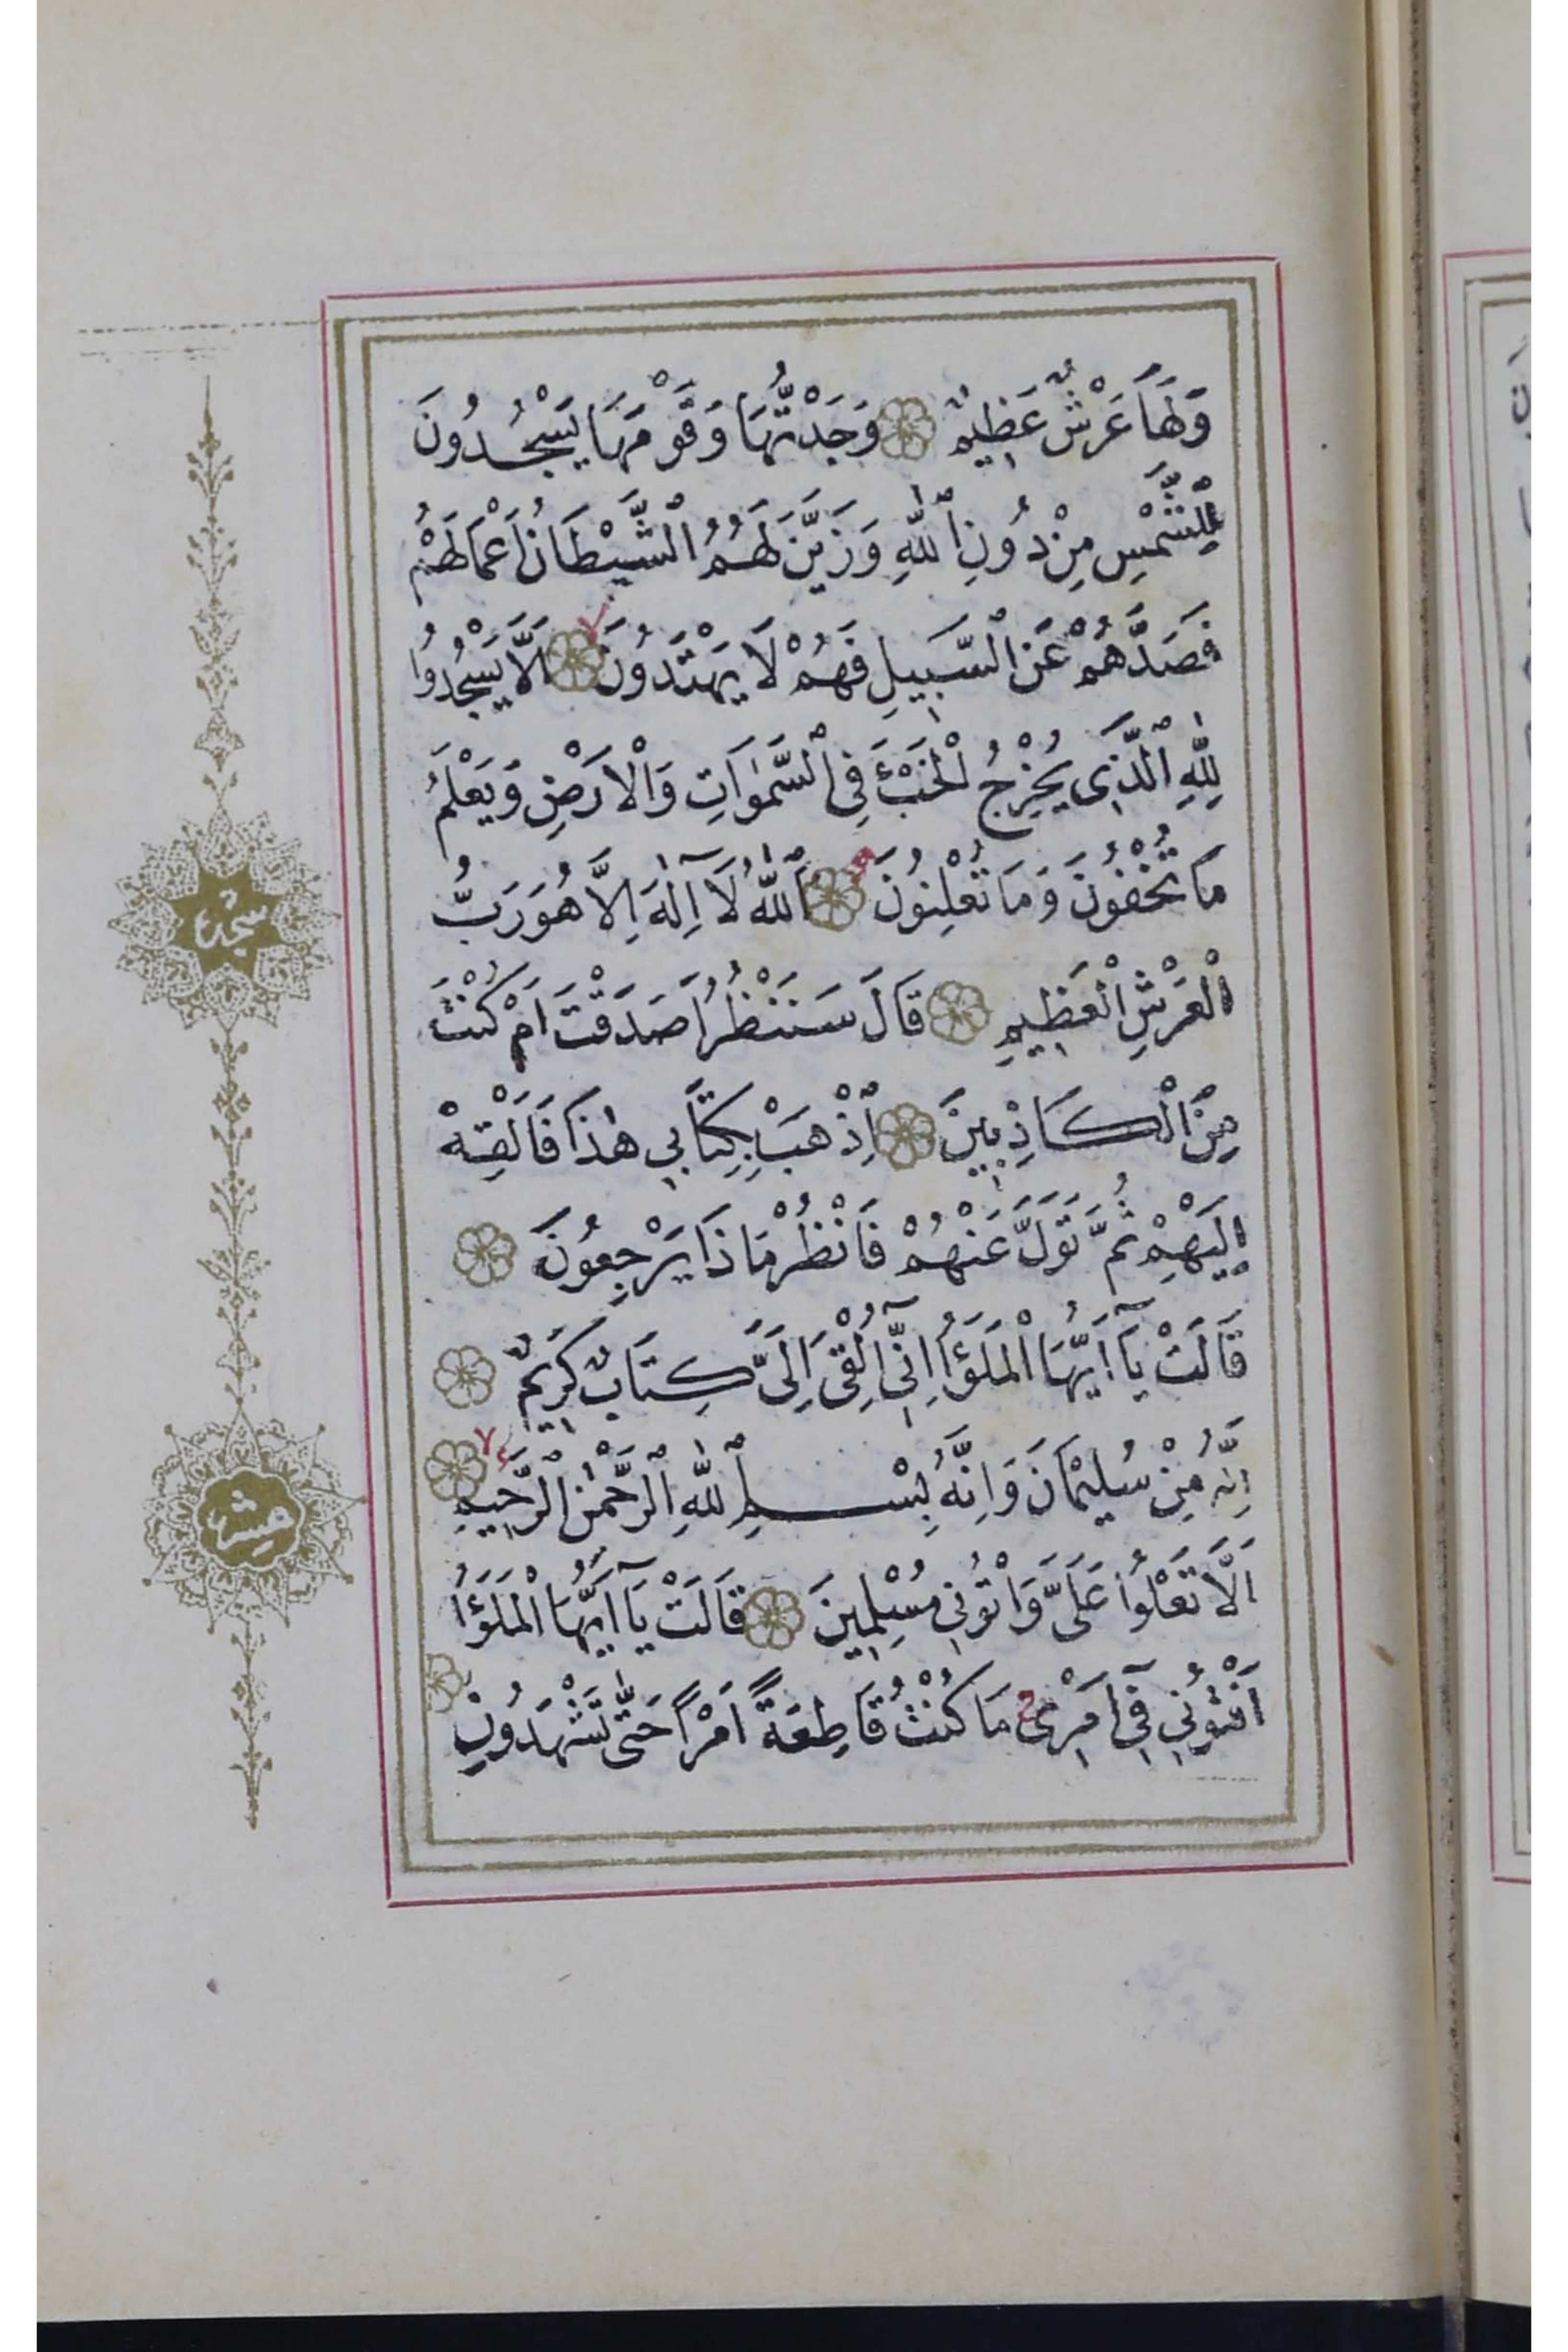 وَلَهَا عَرْشٌ عَظِيمٌ وَجَدْتُّهَا وَقَوْمَهَا يَسْجُدُونَ
لِلشَّمْسِ مِنْ دُونِ اللّٰهِ وَزَيَّنَ لَهُمُ الشَّيْطَانُ اَعْمَالَهُمْ
فَصَدَّهُمْ عَنِ السَّبِيلِ فَهُمْ لَا يَهْتَدُونَ لا اَلَّا يَسْجُدُوا
لِلّٰهِ الَّذِى يُخْرِجُ الْخَبْءَ فِى السَّمٰوَاتِ وَالْاَرْضِ وَيَعْلَمُ
مَا تُخْفُونَ وَمَا تُعْلِنُونَ اَللّٰهُ لَٓا اِلٰهَ اِلَّا هُوَ رَبُّ
الْعَرْشِ الْعَظِيمِ قَالَ سَنَنْظُرُ اَصَدَقْتَ اَمْ كُنْتَ
مِنَ الْكَاذِبِينَ اِذْهَبْ بِكِتَابِى هٰذَا فَاَلْقِهْ
اِلَيْهِمْ ثُمَّ تَوَلَّ عَنْهُمْ فَانْظُرْ مَاذَا يَرْجِعُونَ
قَالَتْ يَٓا اَيُّهَا الْمَلَؤُا اِنِّٓى اُلْقِىَ اِلَىَّ كِتَابٌ كَرِيمٌ
اِنَّهُ مِنْ سُلَيْمٰنَ وَاِنَّهُ بِسْمِ اللّٰهِ الرَّحْمٰنِ الرَّحِيمِ لا
اَلَّا تَعْلُوا عَلَىَّ وَاْتُونِى مُسْلِمِينَ قَالَتْ يَٓا اَيُّهَا الْمَلَؤُا
اَفْتُونِى فِٓى اَمْرِى ج مَا كُنْتُ قَاطِعَةً اَمْرًا حَتّٰى تَشْهَدُونِ
سجده